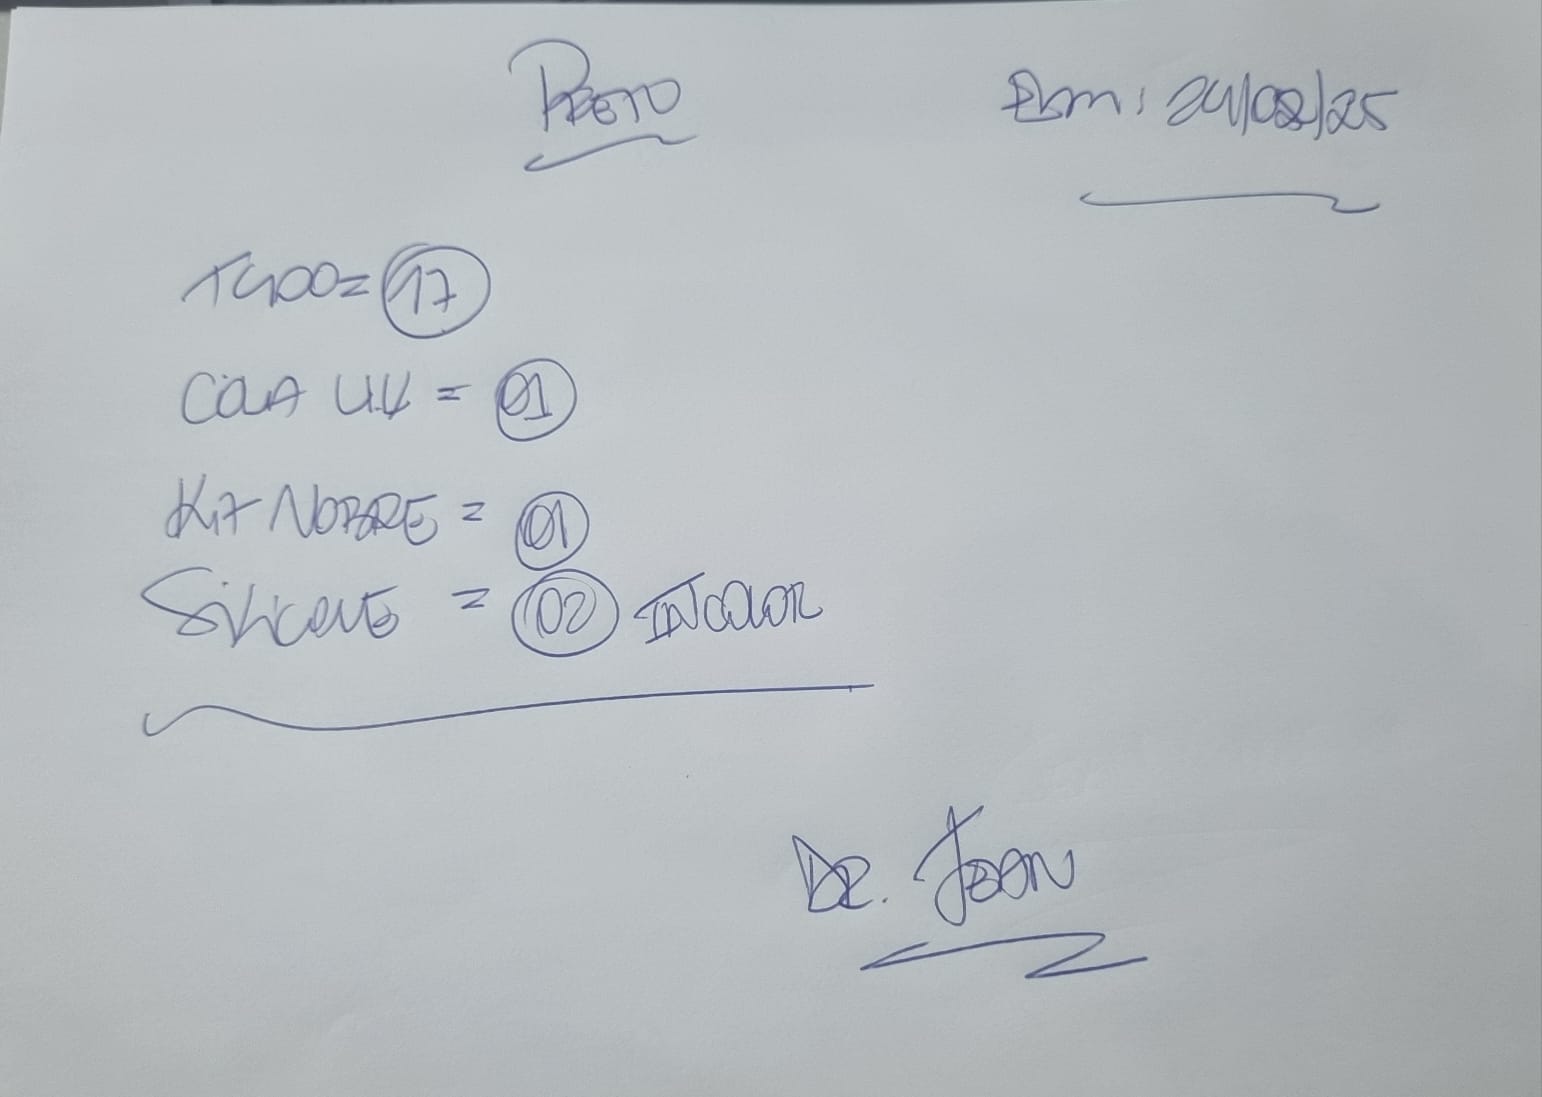 PRETO
Em: 24/02/25
TUDO = 17
COLA U.V = 01
KIT NOBRE = 01
SILICONE = 02 INCOLOR
DR. JEAN